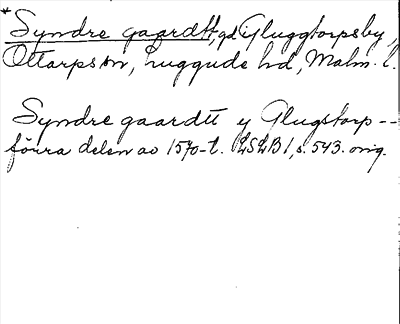 * Syndre gaardtt, gd i Gluggtorpsby,
Ottarps sn, Luggude hd, Malm. l.
Syndre gaardtt y Glugstorp --
förra delen av 1570-t. LSLB 1, s. 543. orig.